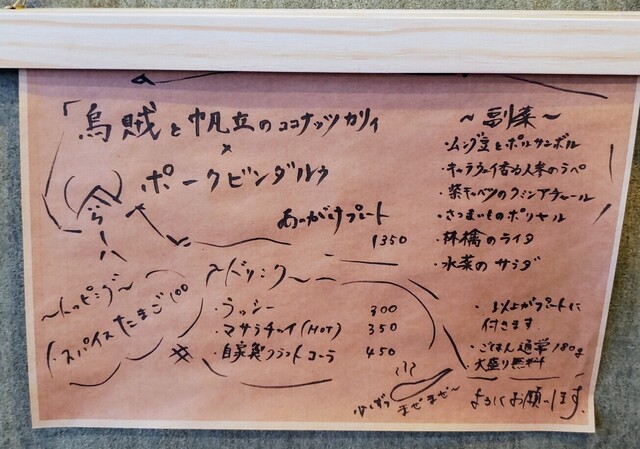 「烏賊と帆立のココナッツカリィ
×
ポークビンダルゥ
あいがけプレート
1350
〜副菜〜
・ムング豆とポルサンボル
・キャラウェイ香る人参のラペ
・紫キャベツのクミンアチャール
・さつまいものポリヤル
・林檎のライタ
・水菜のサラダ
・以上がプレートに
付きます
・ごはん通常180g
大盛り無料
よろしくお願いします。
〜トッピング〜
・スパイスたまご100
〜ドリンク〜
・ラッシー 300
・マサラチャイ(HOT) 350
・自家製クラフトコーラ 450
まぜまぜ〜